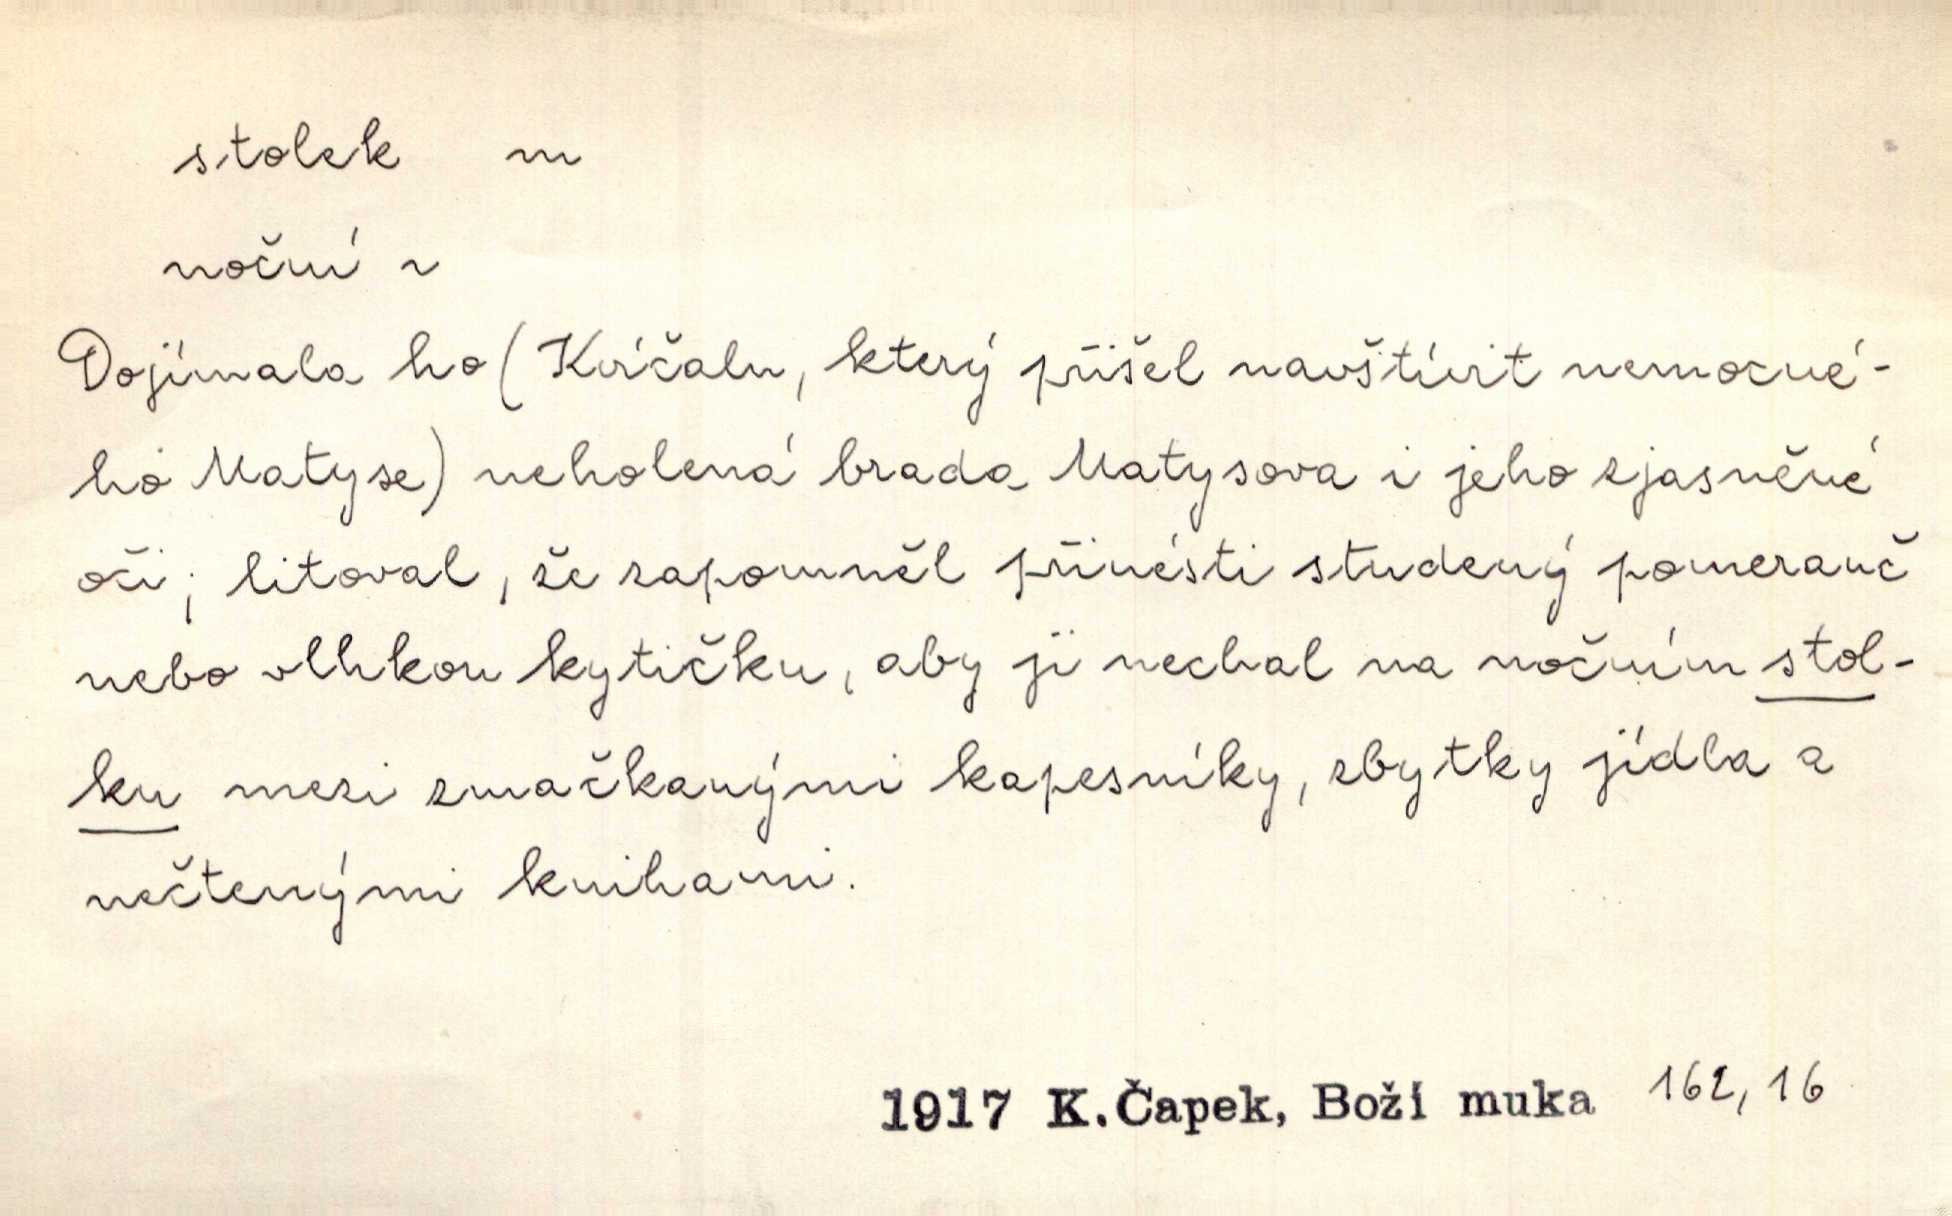 stolek m
noční ~
Dojímala ho (Kvíčalu, který přišel navštívit nemocné-
ho Matyse) neholená brada Matysova i jeho zjasněné
oči; litoval, že zapomněl přinésti studený pomeranč
nebo vlhkou kytičku, aby ji nechal na nočním stol-
ku mezi zmačkanými kapesníky, zbytky jídla a
nečtenými knihami.
1917 K. Čapek, Boží muka 162, 16